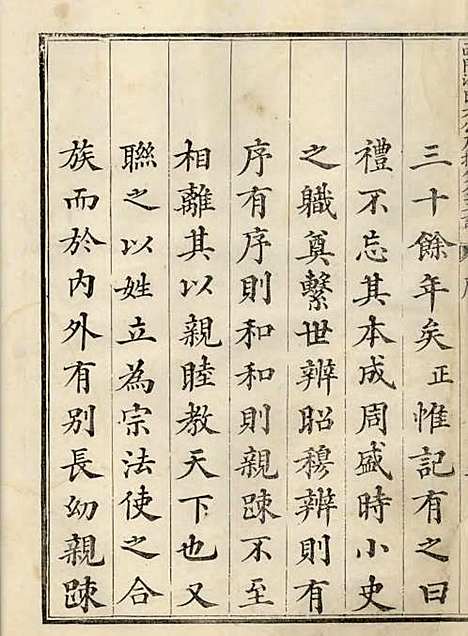 三十餘年矣正惟記有之曰
禮不忘其本成周盛時小史
之職奠繫世辨昭穆辨則有
序有序則和和則親踈不至
相離其以親睦教天下也又
聯之以姓立為宗法使之合
族而於內外有別長幼親踈